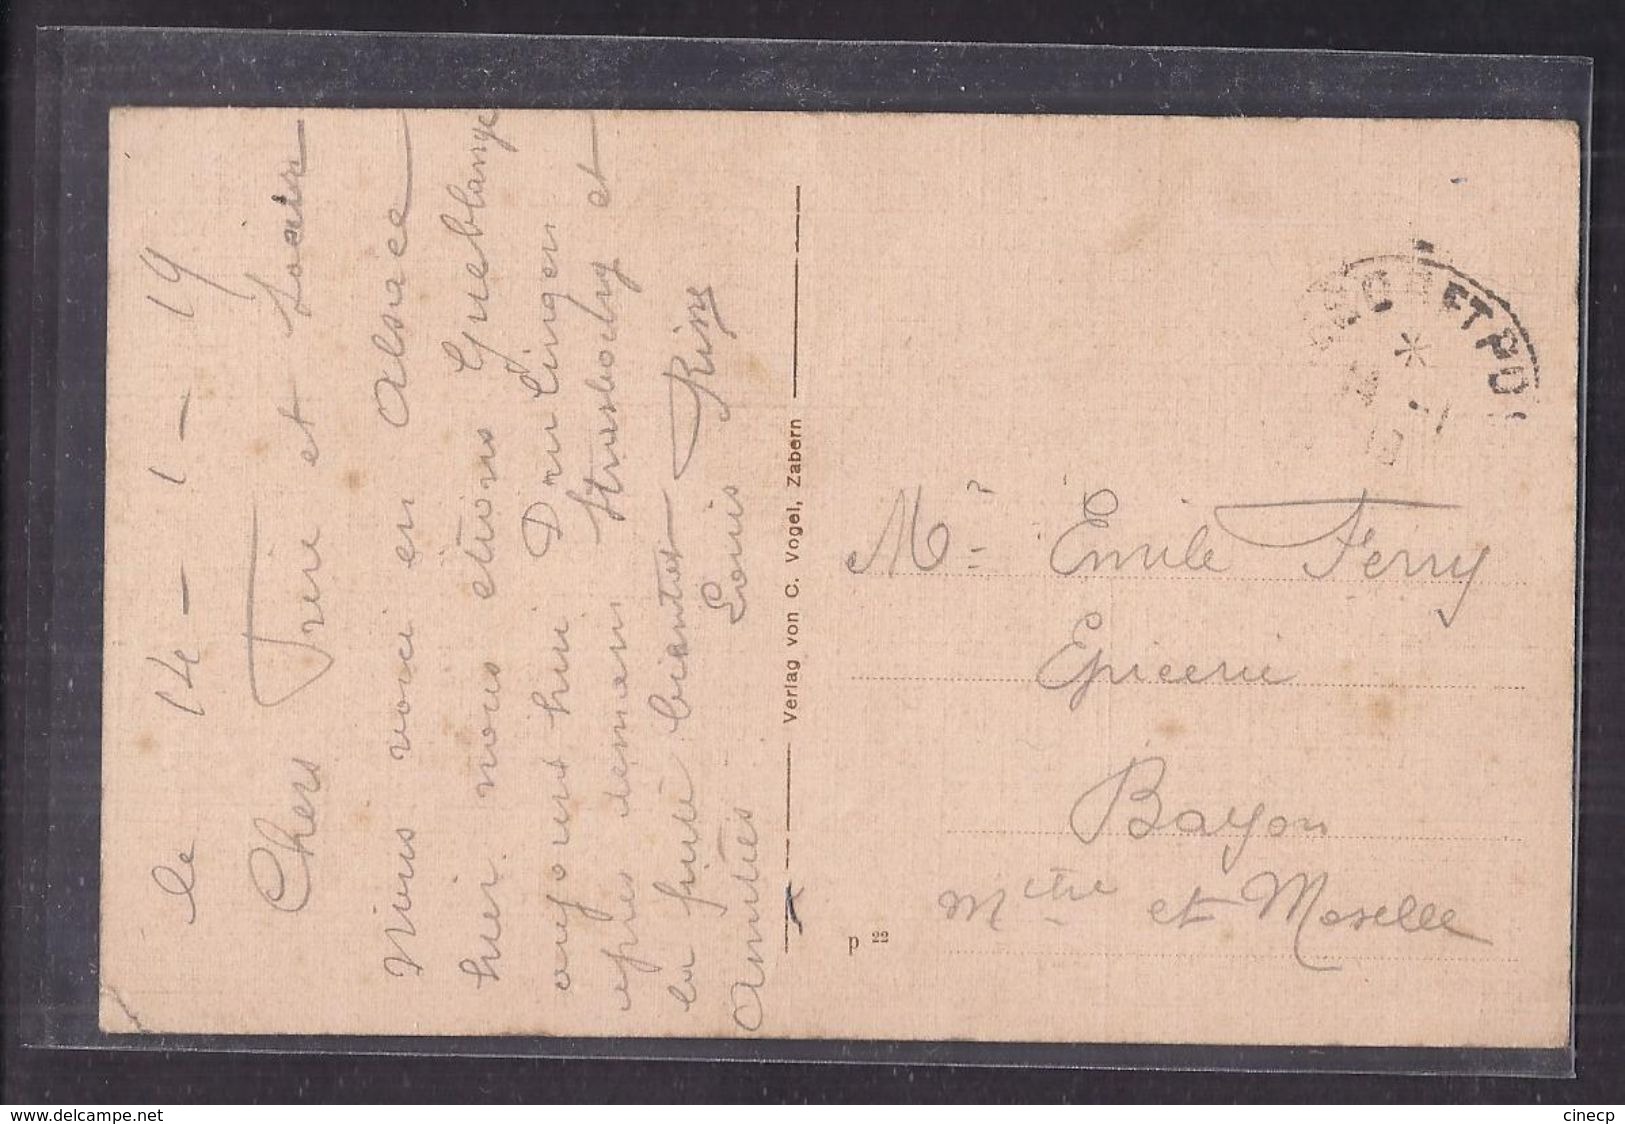 le 14 - 1 - 19
Chers Frère et Soeur
Nous voici en Alsace
hier nous etions Guéblange
aujourd hui Drulingen
apres demain Strasbourg et
la frère bientot
Amitiés Louis
Verlag von C. Vogel, Zabern
p 22
ET PO
Mr Emile Ferry
Epicerie
Bayon
Mthe et Moselle
www.delcampe.net
cinecp